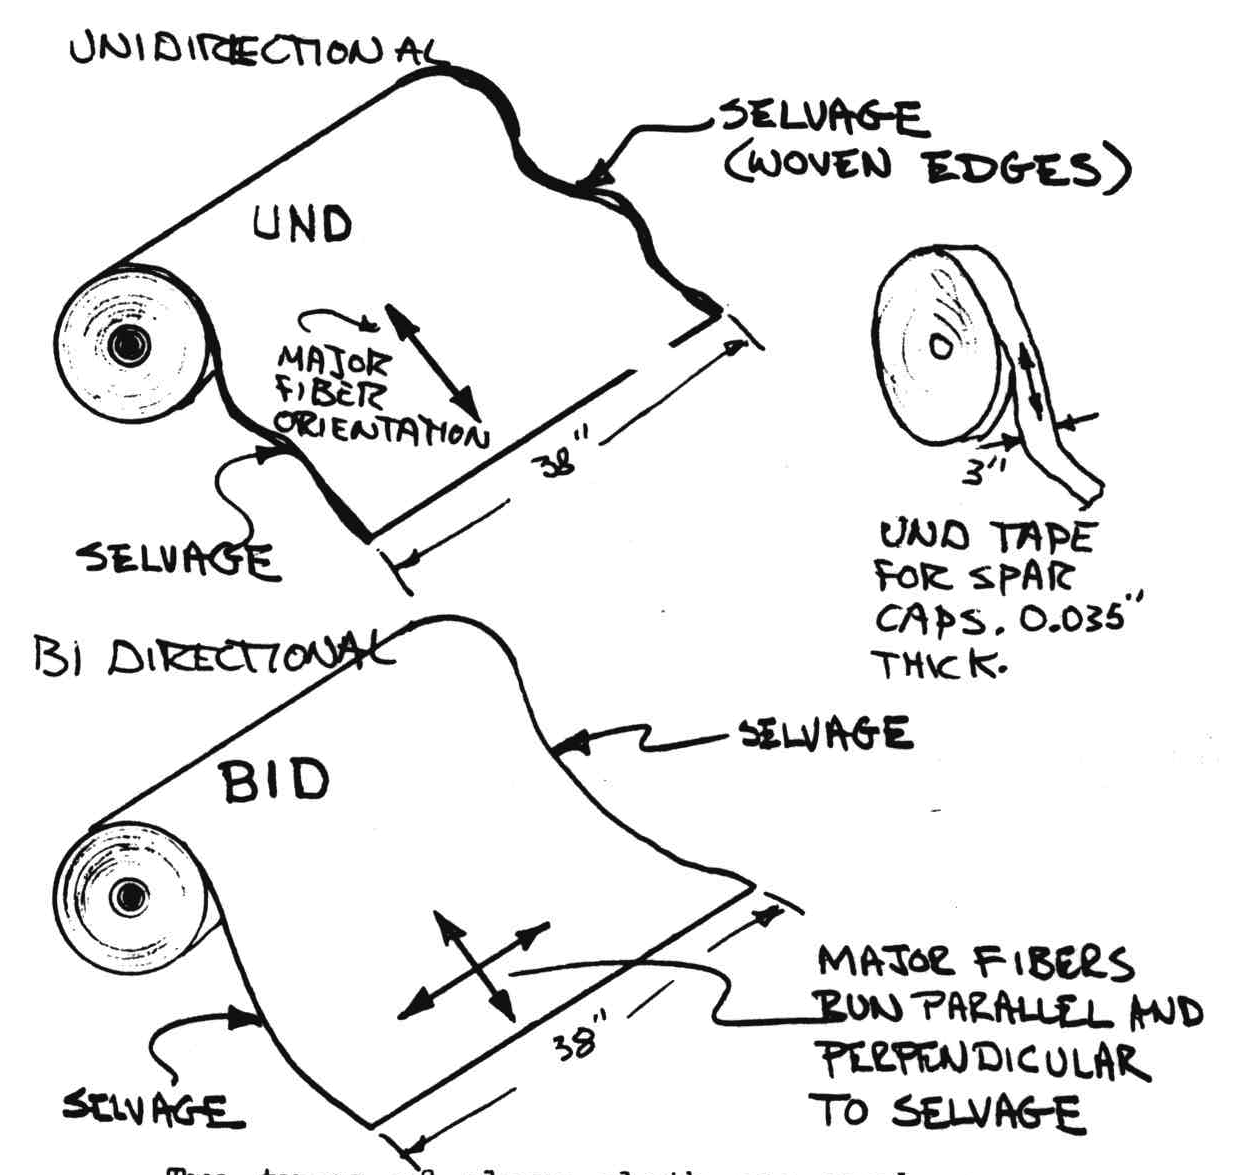 UNIDIRECTIONAL
SELVAGE
(WOVEN EDGES)
UND
MAJOR
FIBER
ORIENTATION
38"
3"
SELVAGE
UND TAPE
FOR SPAR
CAPS. 0.035"
THICK.
BI DIRECTIONAL
SELVAGE
BID
MAJOR FIBERS
RUN PARALLEL AND
PERPENDICULAR
TO SELVAGE
38"
SELVAGE